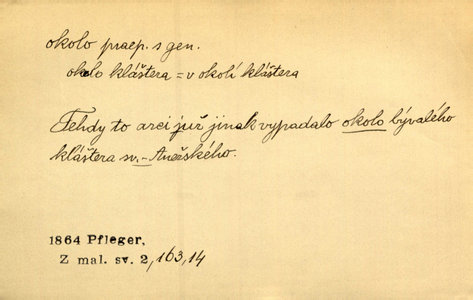 okolo praep. s gen.
okolo kláštera = v okolí kláštera
Tehdy to arci již jinak vypadalo okolo bývalého
kláštera sv.-Anežského.
1864 Pfleger,
Z mal. sv. 2, 163, 14